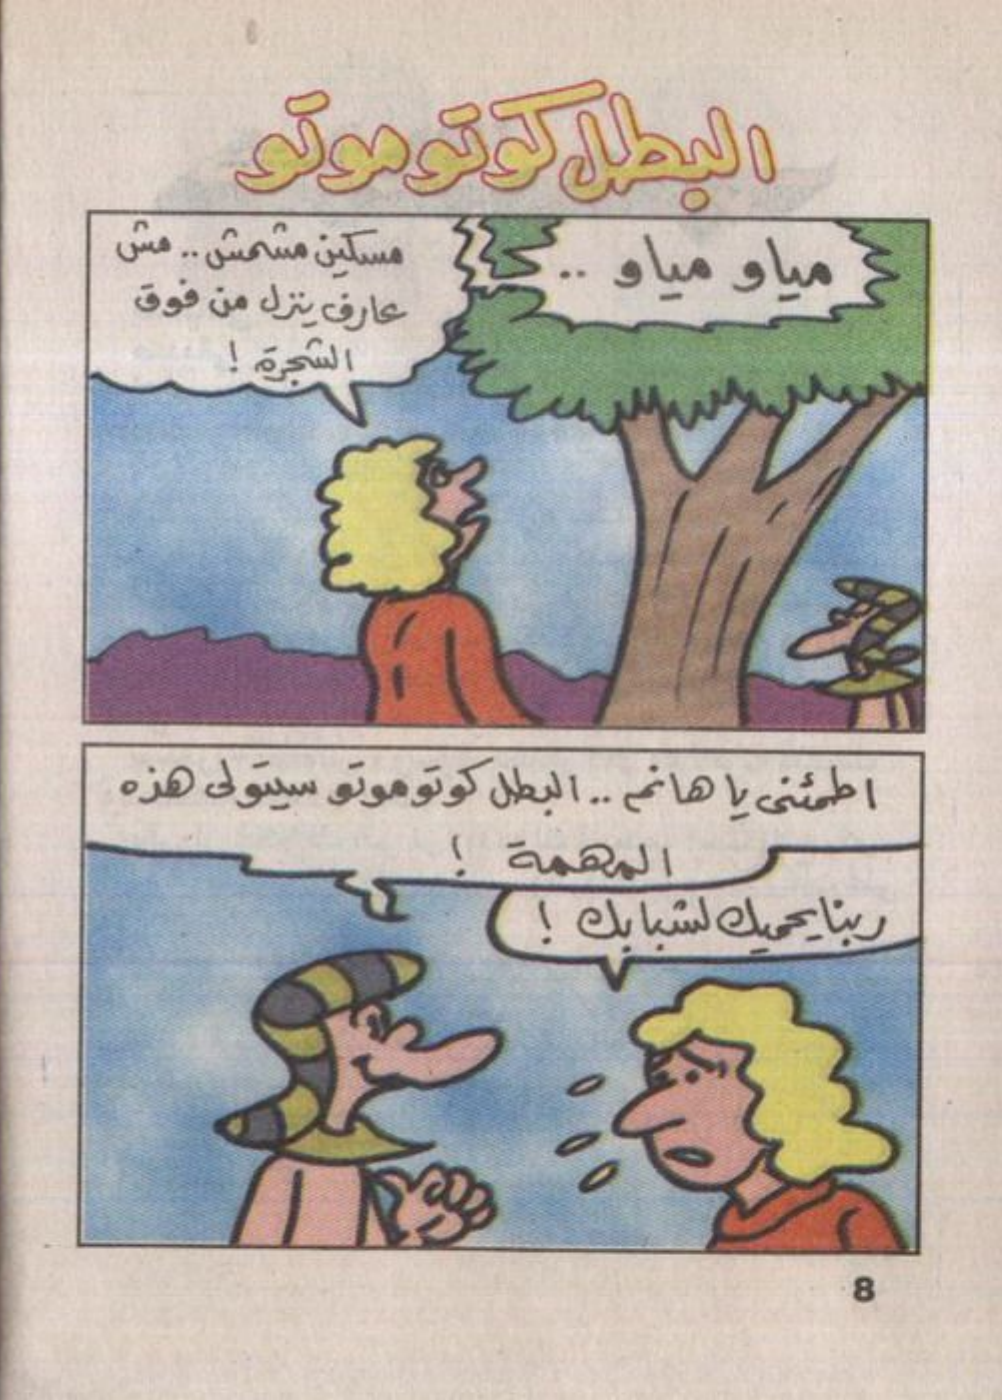 البطل كوتوموتو
مياو مياو ..
مسكين مشمش .. مش
عارف ينزل من فوق
الشجرة !
اطمئنى يا هانم .. البطل كوتوموتو سيتولى هذه
المهمة !
ربنا يحميك لشبابك !
8